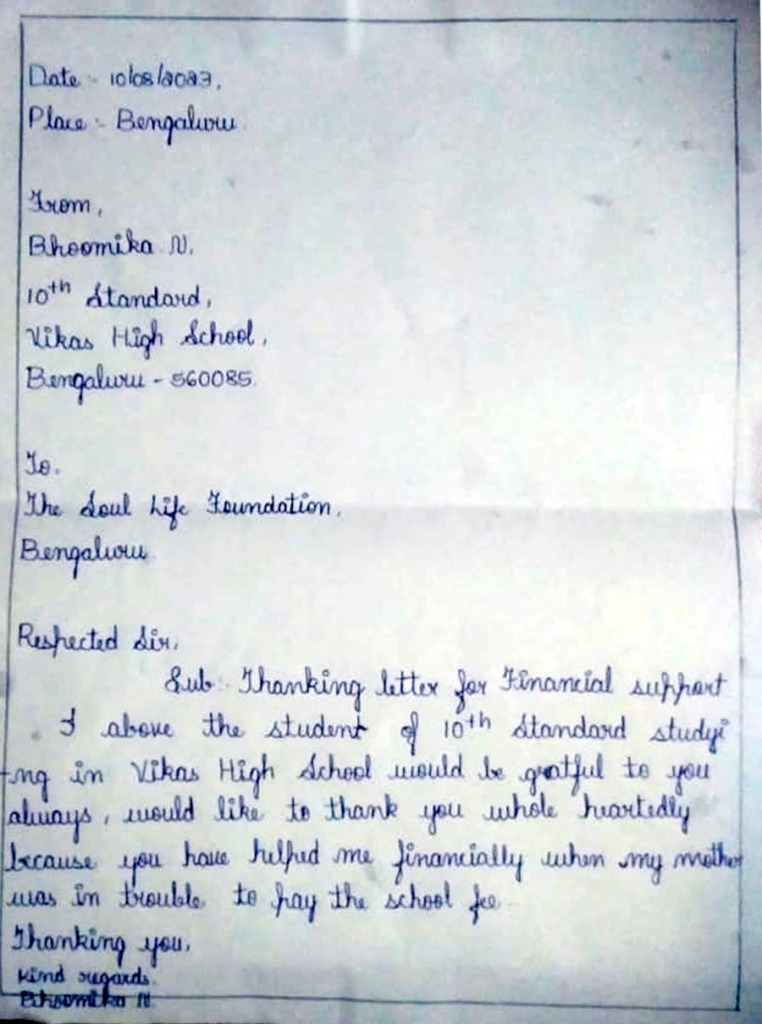 Date :- 10/08/2023,
Place :- Bengaluru.
From,
Bhoomika N,
10th Standard,
Vikas High School,
Bengaluru - 560085.
To,
The Soul Life Foundation,
Bengaluru.
Respected Sir,
Sub:- Thanking letter for Financial support
I above the student of 10th Standard studyi
-ng in Vikas High School would be gratful to you
always, would like to thank you whole heartedly
because you have helped me financially when my mother
was in trouble to pay the school fee.
Thanking you,
Kind regards.
Bhoomika N